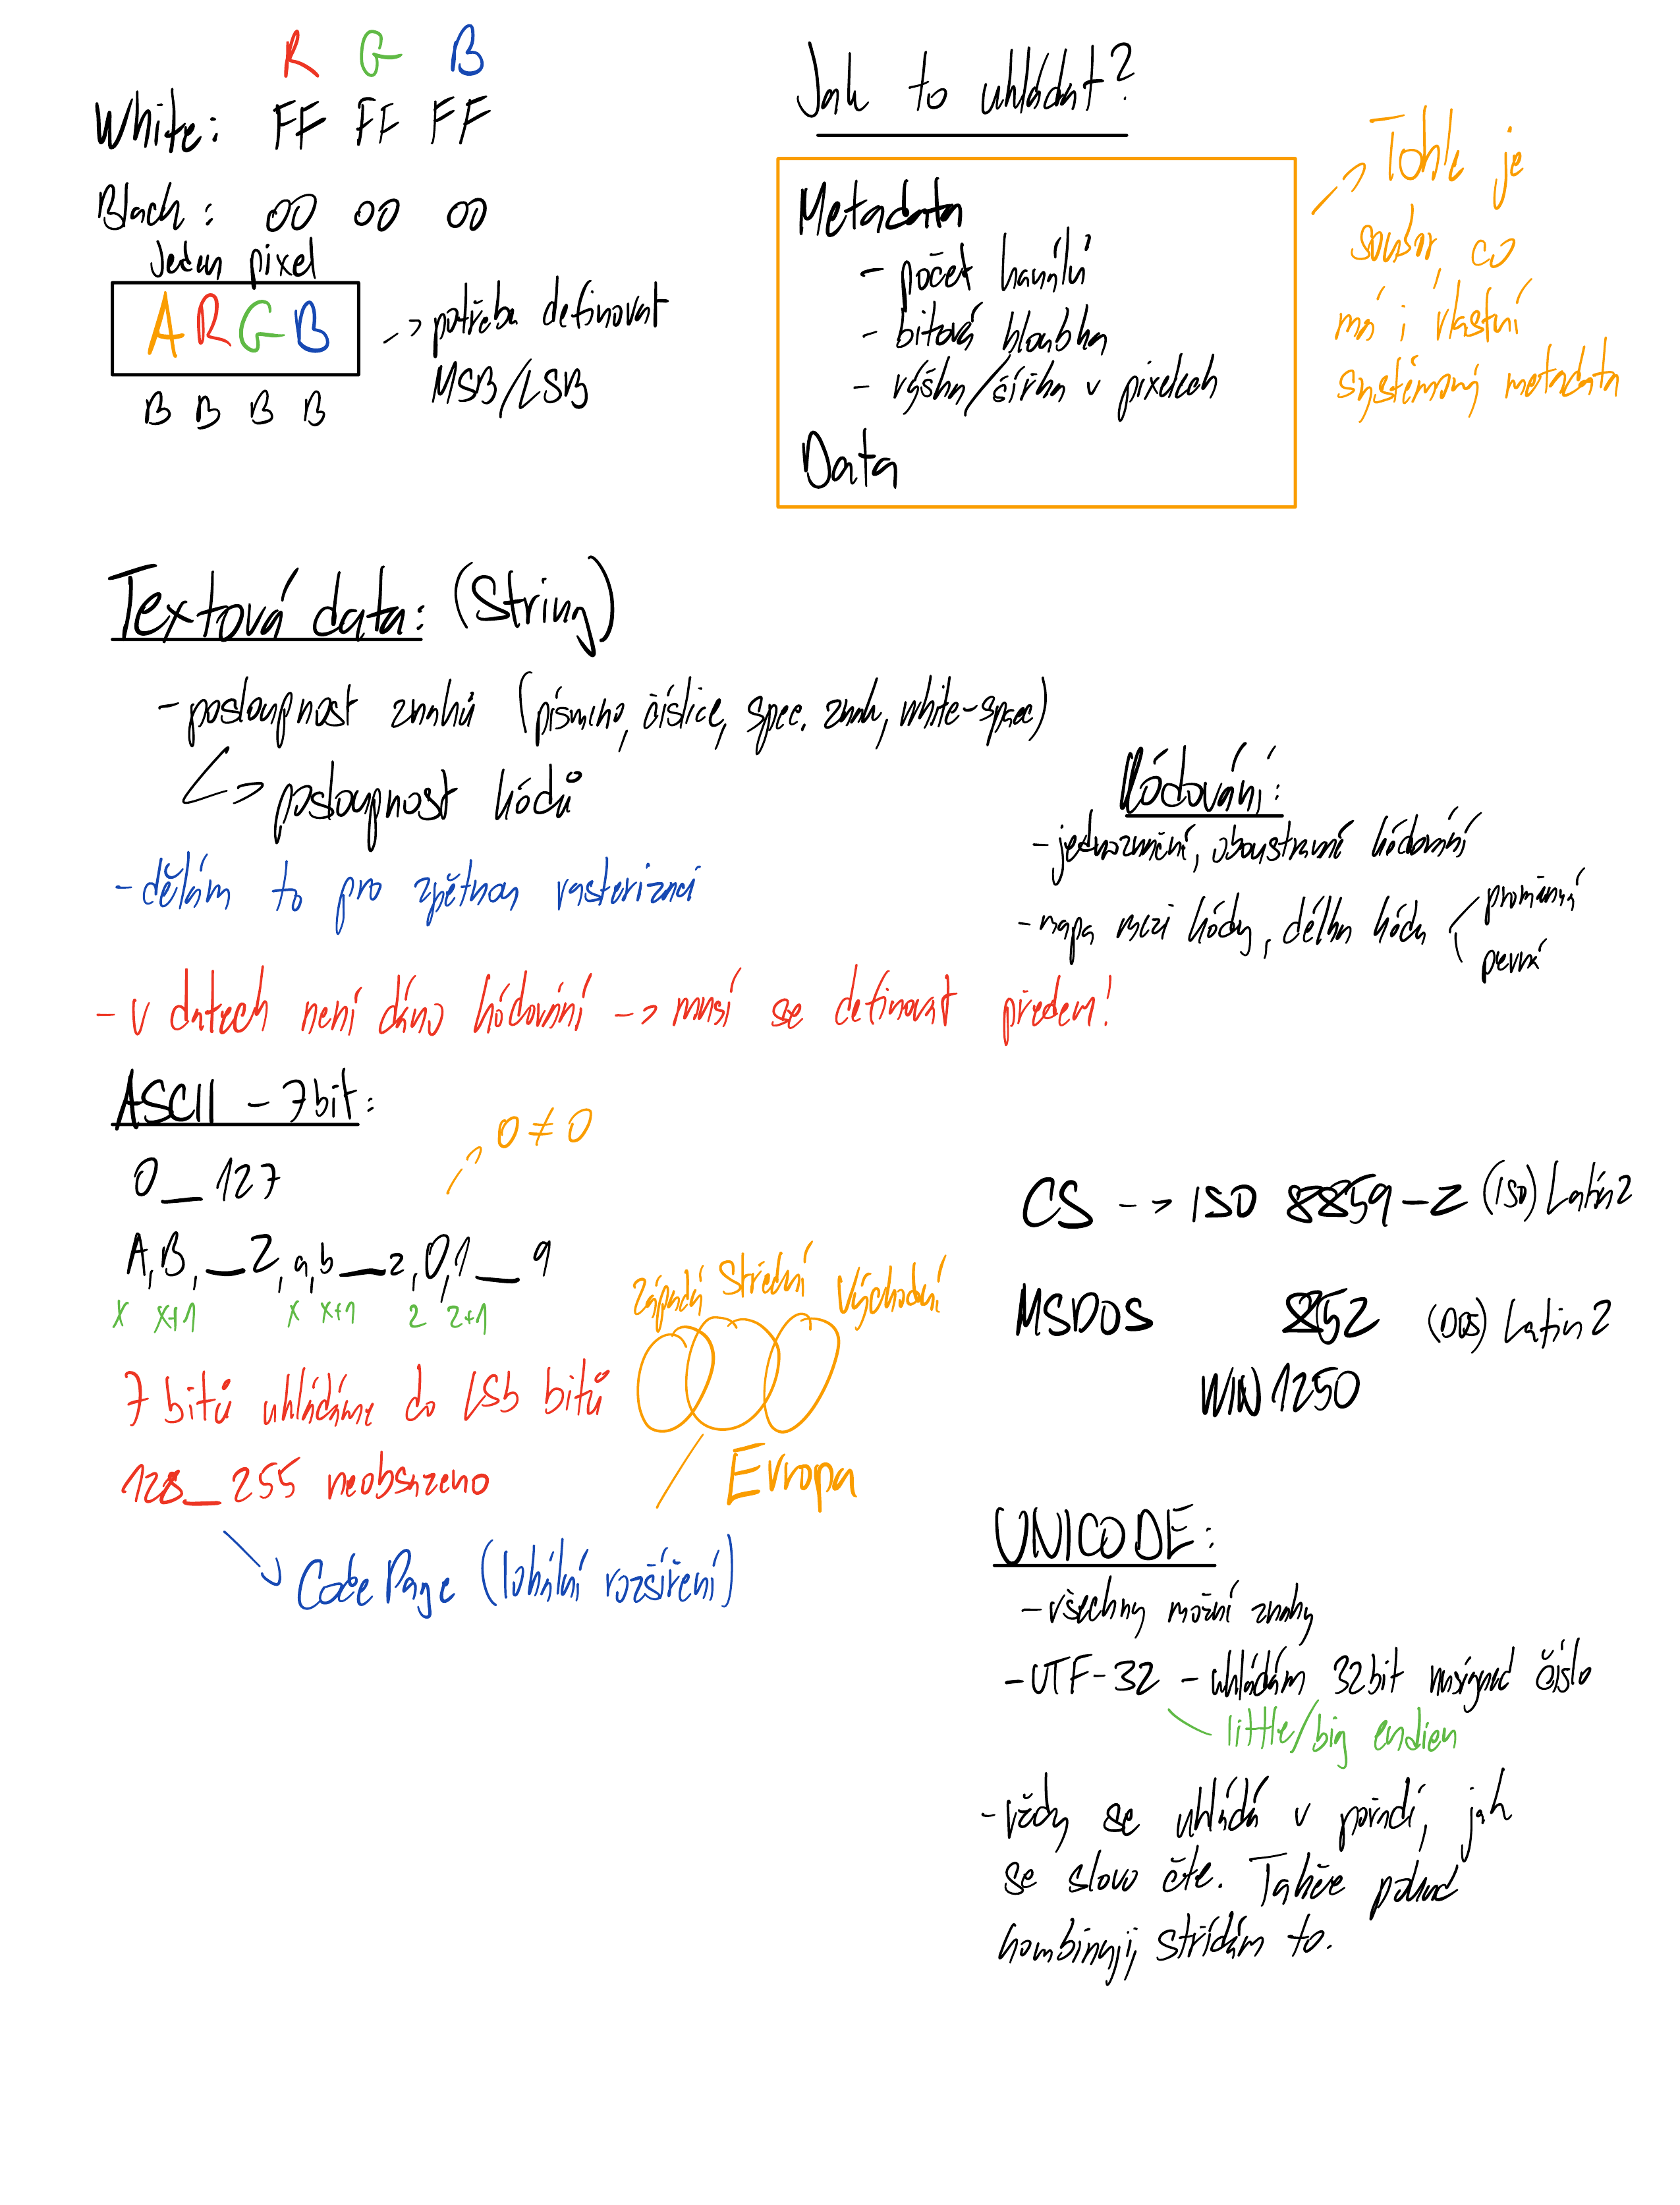 R G B
White: FF FF FF
Black: 00 00 00
Jeden pixel
A R G B
B B B B
-> potřeba definovat
MSB/LSB
Jak to ukládat?
Metadata
- počet kanálů
- bitová hloubka
- výška/šířka v pixelech
Data
-> Tohle je
soubor, co
má i vlastní
systémový metadata
Textová data: (String)
- posloupnost znaků (písmeno, číslice, spec. znak, white-space)
-> posloupnost kódů
- dělám to pro zpětnou rasterizaci
- v datech není dáno kódování -> musí se definovat předem!
Kódování:
- jednoznační, oboustranné kódování
- mapa mezi kódy, délka kódu
proměnná
pevná
ASCII - 7bit:
0 _ 127
-> 0 ≠ 0
A, B, _ Z, a, b _ z, 0, 1 _ 9
x x+1 x x+1 z z+1
7 bitů ukládáme do LSb bitů
128 _ 255 neobsazeno
-> Code Page (lokální rozšíření)
Západní Střední Východní
Evropa
CS -> ISO 8859-2 (ISO) Latin 2
MSDOS 852 (DOS) Latin 2
WIN 1250
UNICODE:
- všechny možné znaky
- UTF-32 - ukládám 32bit unsigned číslo
little/big endien
- vždy se ukládá v pořadí, jak
se slovo čte. Takže pokud
kombinuji, střídám to.